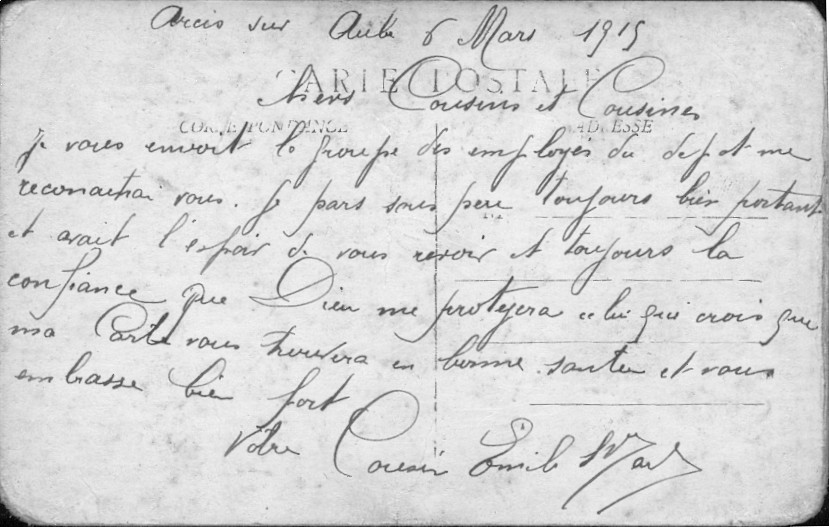 Arcis sur Aube 6 Mars 1915
CARTE POSTALE
Chers Cousins et Cousines
CORRESPONDANCE ADRESSE
Je vous envoit le groupe des employés du depot me
reconaitrai vous. Je pars sous peu toujours bien portant
et avait l'espoir de vous revoir et toujours la
confiance que Dieu me protegera celui qui crois que
ma Carte vous trouvera en bonne santee et vous
embrasse bien fort
Votre Cousin Emile